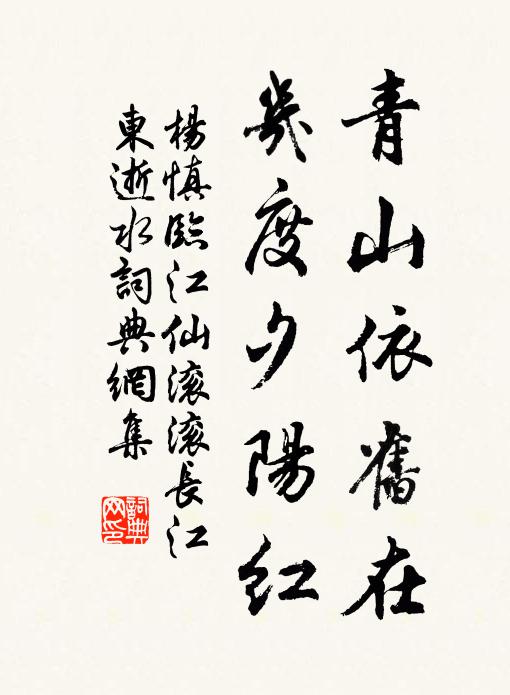 青山依舊在
幾度夕陽紅
楊慎臨江仙滚滚長江
東逝水詞典網集
詞典
网印